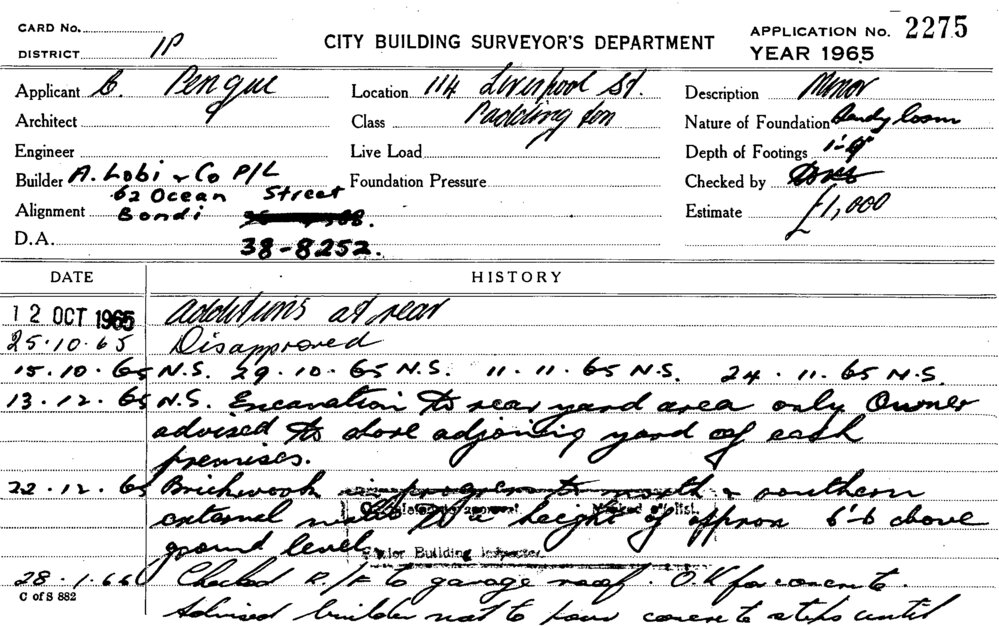 CARD No.
DISTRICT 1P
CITY BUILDING SURVEYOR'S DEPARTMENT
APPLICATION No. 2275
YEAR 1965
Applicant C. Pengue
Location 114 Liverpool St.
Description Minor
Architect
Class Paddington
Nature of Foundation Sandy loam
Engineer
Live Load
Depth of Footings 1'-9"
Builder A. Lobi & Co P/L
Foundation Pressure
Checked by
62 Ocean Street
Alignment Bondi
Estimate £1,000
D.A. 38-8252.
DATE HISTORY
12 OCT 1965 Additions at rear
25.10.65 Disapproved
15.10.65 N.S. 29.10.65 N.S. 11.11.65 N.S. 24.11.65 N.S.
13.12.65 N.S. Excavation to rear yard area only Owner
advised to shore adjoining yard of each
premises.
22.12.65 Brickwork in progress to north & southern
external walls to a height of approx 6'-6 above
ground level
Senior Building Inspector
28.1.66 Checked R/F to garage roof. O.K for concrete.
C of S 882
Advised builder not to pour concrete steps until